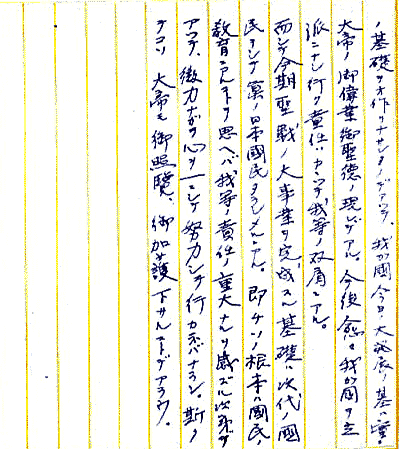 ノ基礎ヲオ作リナサレタノデアツテ、我ガ國今日ノ大発展ノ基ハ実ニ
大帝ノ御偉業御聖徳ノ現レデアル。今後愈々我ガ國ヲ立
派ニナシ行ク責任ハカヽツテ我等ノ双肩ニアル。
而シテ今期聖戰ノ大事業ヲ完成スル基礎ハ次代ノ國
民ヲシテ眞ノ日本國民タラシメルニアル。即チソノ根本ハ國民ノ
教育ニアルト思ヘバ我等ノ責任ノ重大ナルヲ感ズル次第デ
アツテ、微力ナガラ心ヲ一ニシテ努力シテ行カネバナラン。斯ク
テコソ大帝モ御照覧、御加護下サルコトデアラウ。